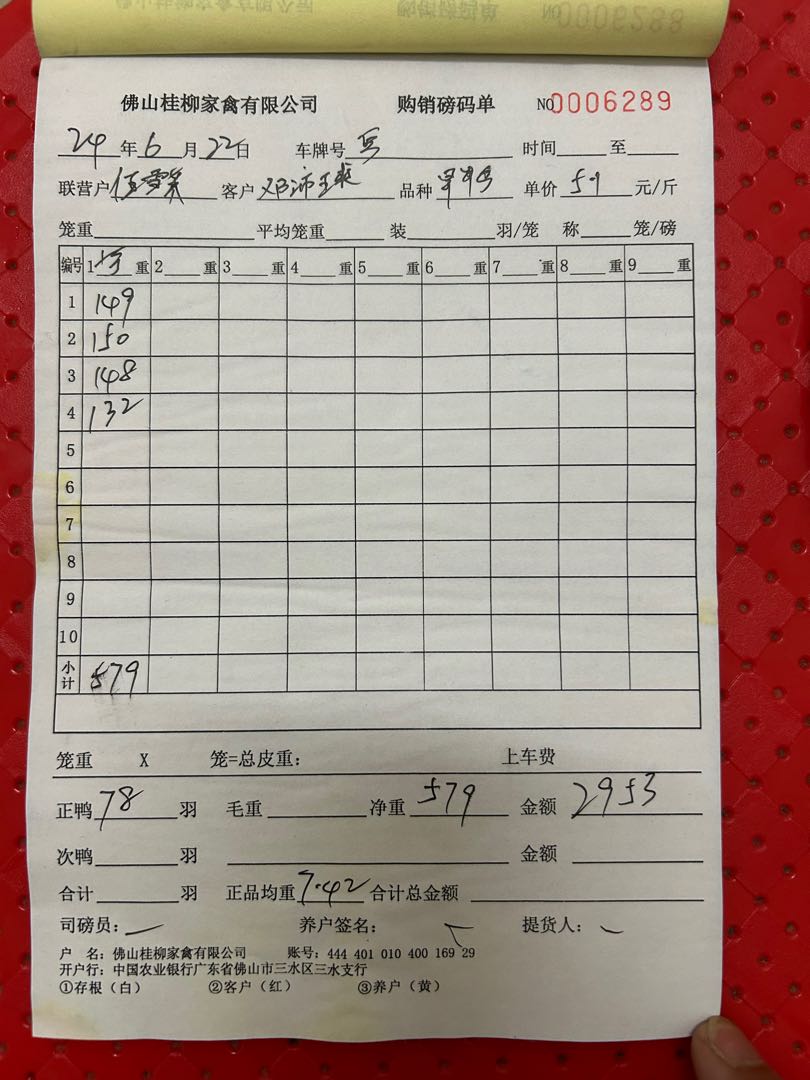 佛山桂柳家禽有限公司 购销磅码单 NO 0006289
24年6月22日 车牌号 时间 至
联营户 客户 邓沛球 品种 单价 5.1 元/斤
笼重 平均笼重 装 羽/笼 称 笼/磅
编号 1 重 2 重 3 重 4 重 5 重 6 重 7 重 8 重 9 重
1 149
2 150
3 148
4 132
5
6
7
8
9
10
小计 579
笼重 X 笼=总皮重: 上车费
正鸭 78 羽 毛重 净重 579 金额 2953
次鸭 羽 金额
合计 羽 正品均重 7.42 合计总金额
司磅员: 养户签名: 提货人:
户 名: 佛山桂柳家禽有限公司 账号: 444 401 010 400 169 29
开户行: 中国农业银行广东省佛山市三水区三水支行
①存根（白） ②客户（红） ③养户（黄）